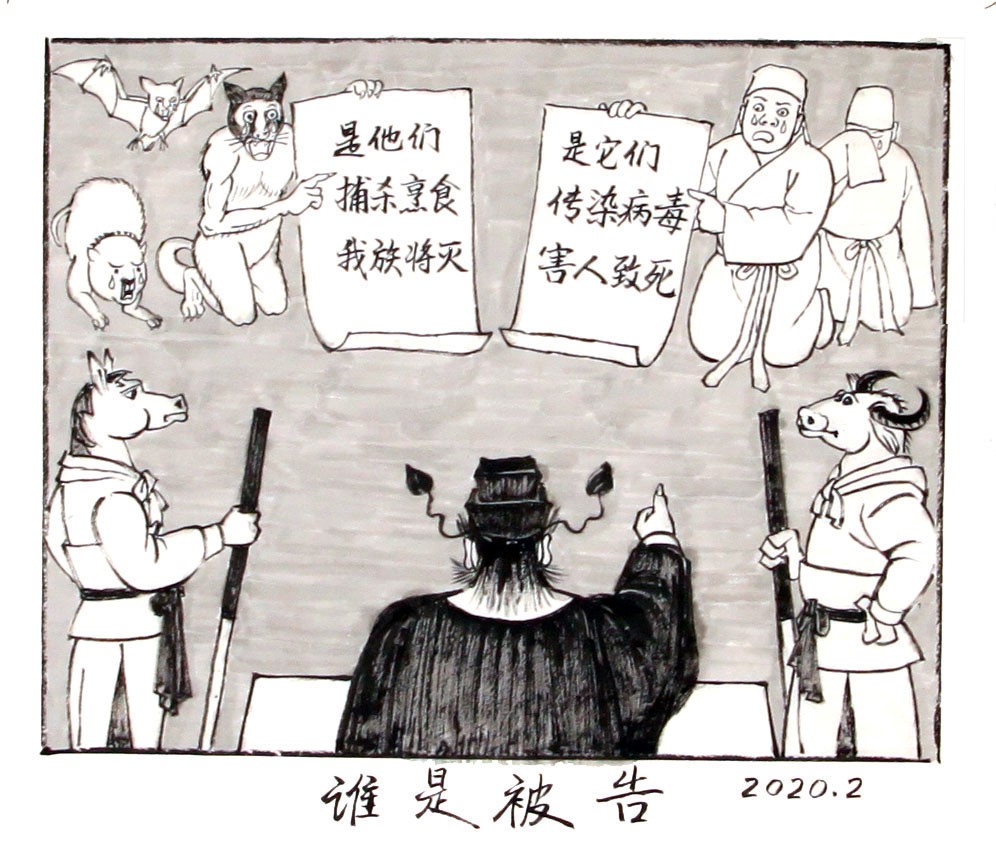 是他们
捕杀烹食
我族将灭
是它们
传染病毒
害人致死
谁是被告 2020.2